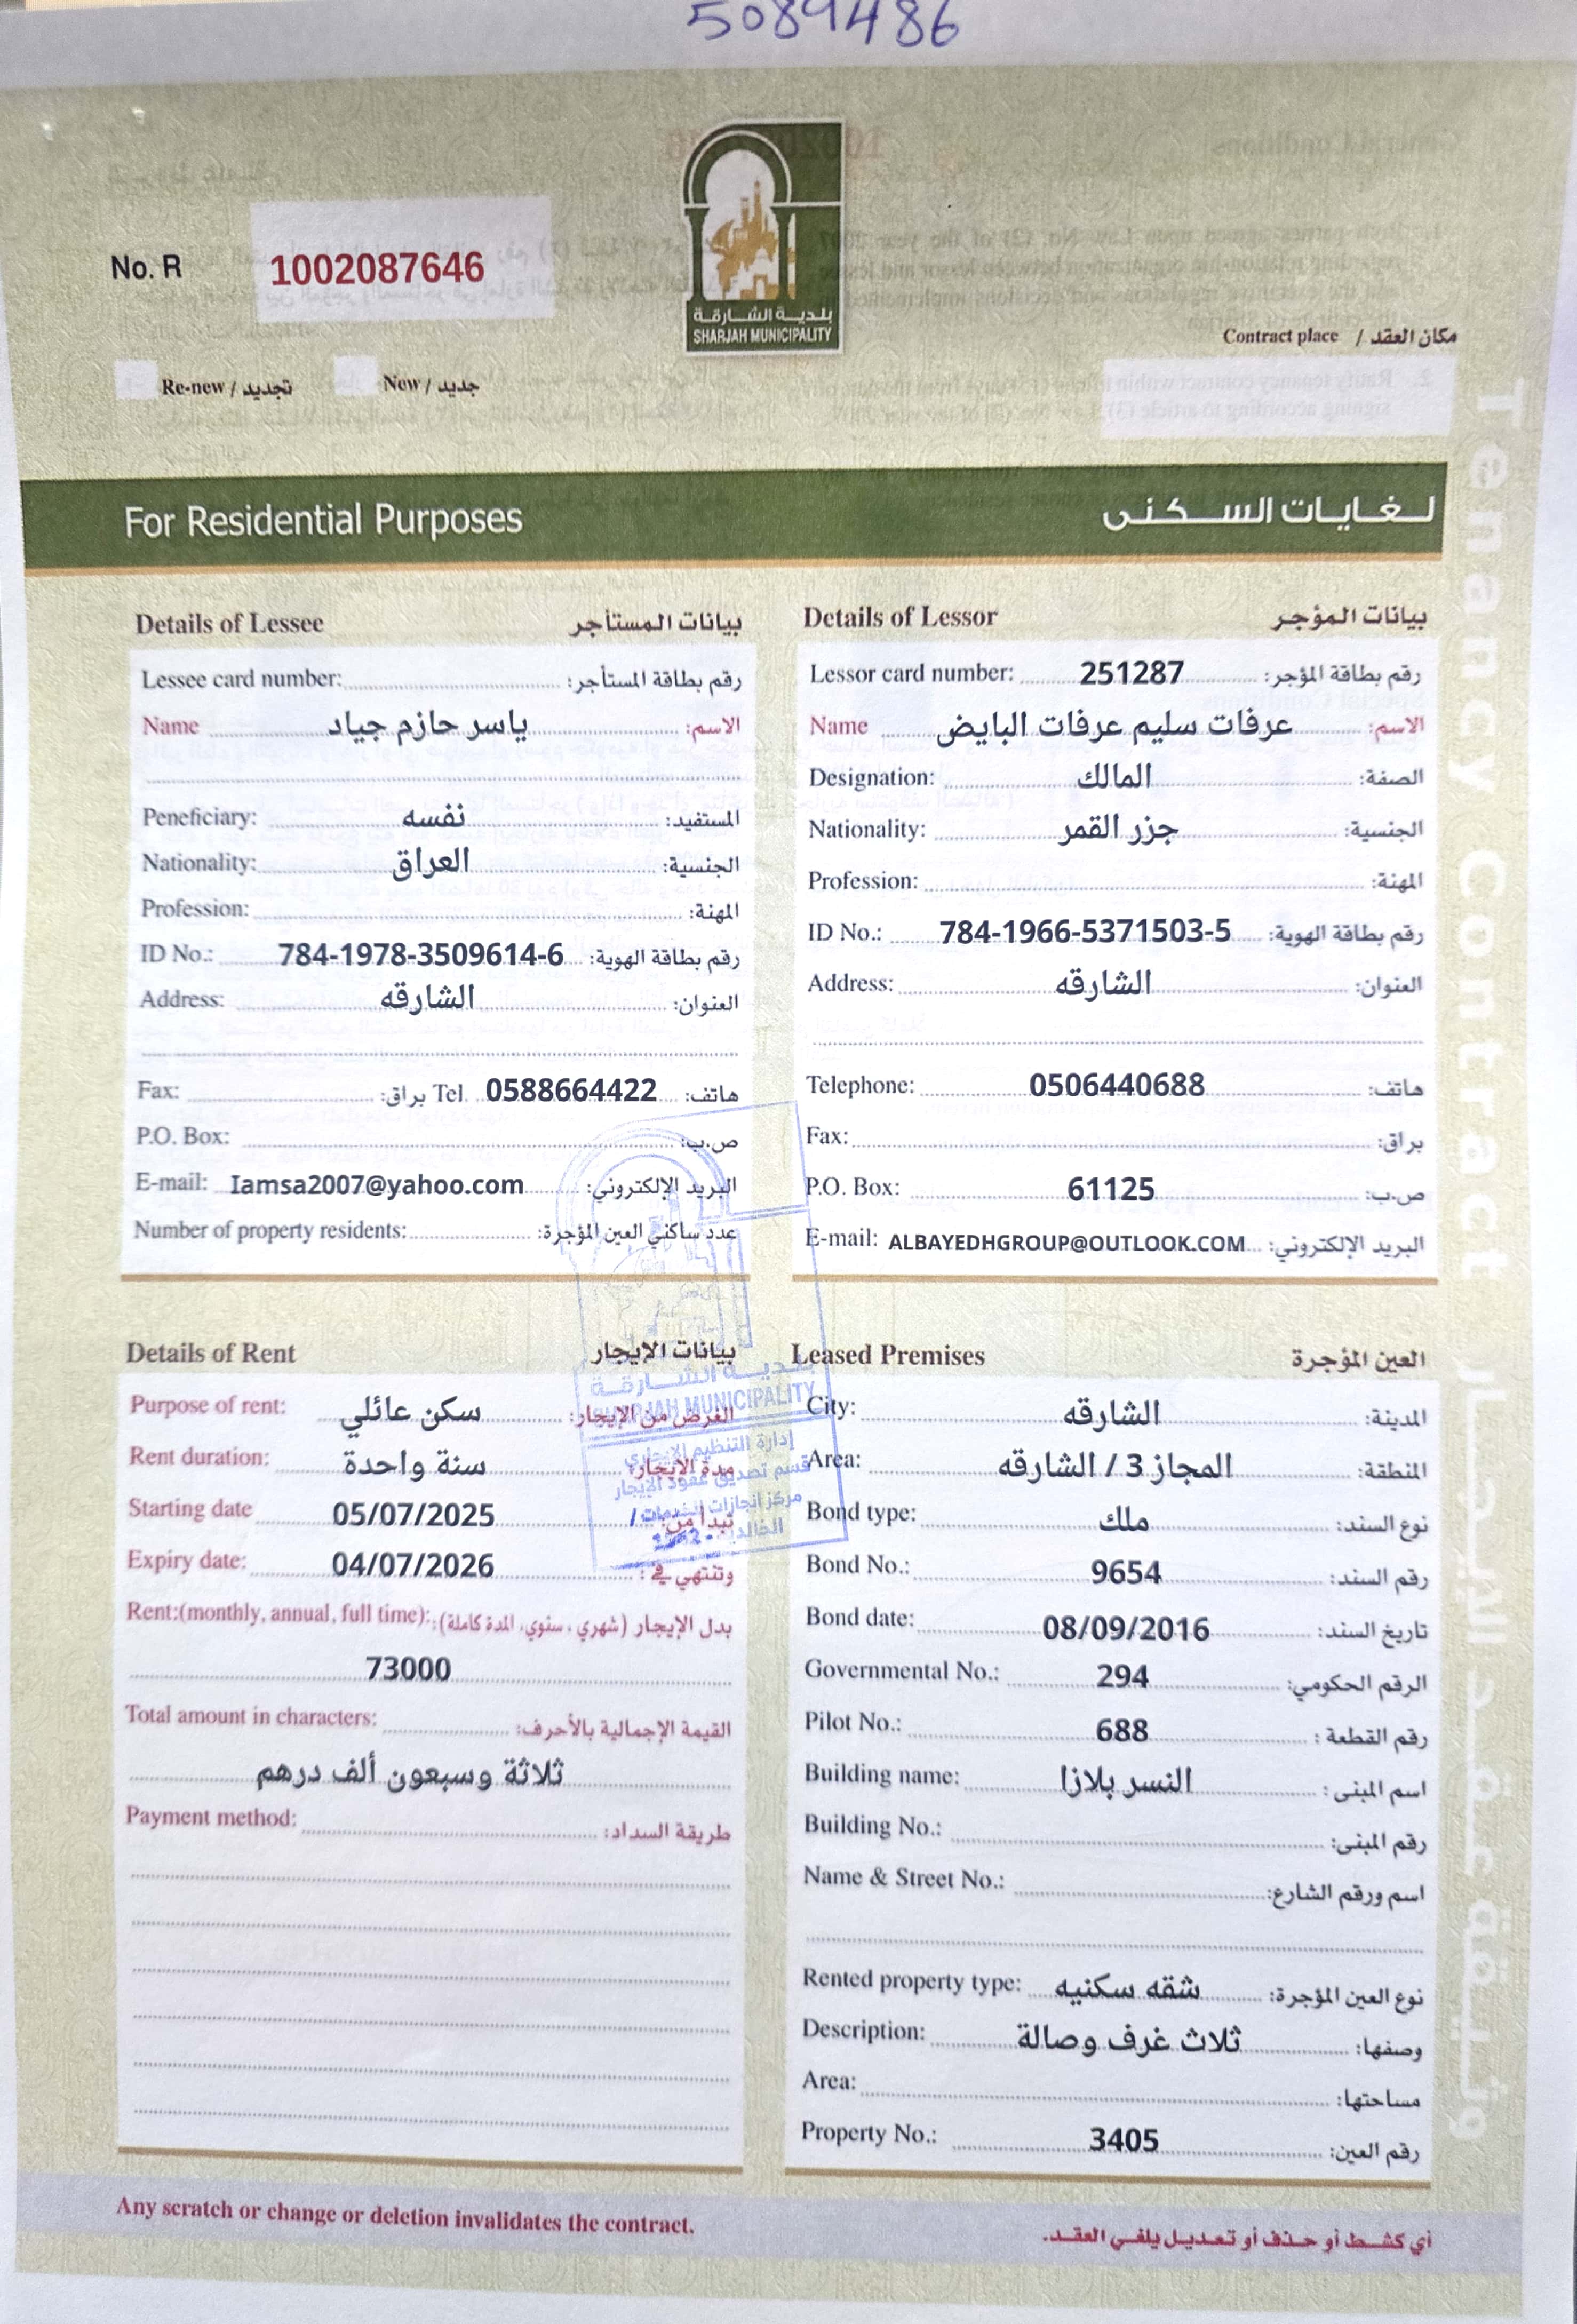 5089486
No. R 1002087646
بلدية الشارقة
SHARJAH MUNICIPALITY
Contract place / مكان العقد
Re-new / تجديد New / جديد
Tenancy Contract
For Residential Purposes لغايات السكنى
Details of Lessee بيانات المستأجر
Lessee card number: رقم بطاقة المستأجر:
Name ياسر حازم جياد الاسم:
Peneficiary: نفسه المستفيد:
Nationality: العراق الجنسية:
Profession: المهنة:
ID No.: 784-1978-3509614-6 رقم بطاقة الهوية:
Address: الشارقه العنوان:
Fax: براق: Tel. 0588664422 هاتف:
P.O. Box: ص.ب:
E-mail: Iamsa2007@yahoo.com البريد الإلكتروني:
Number of property residents: عدد ساكني العين المؤجرة:
Details of Lessor بيانات المؤجر
Lessor card number: 251287 رقم بطاقة المؤجر:
Name عرفات سليم عرفات البايض الاسم:
Designation: المالك الصفة:
Nationality: جزر القمر الجنسية:
Profession: المهنة:
ID No.: 784-1966-5371503-5 رقم بطاقة الهوية:
Address: الشارقه العنوان:
Telephone: 0506440688 هاتف:
Fax: براق:
P.O. Box: 61125 ص.ب:
E-mail: ALBAYEDHGROUP@OUTLOOK.COM البريد الإلكتروني:
Details of Rent بيانات الإيجار
Purpose of rent: سكن عائلي الغرض من الإيجار:
Rent duration: سنة واحدة مدة الإيجار:
Starting date 05/07/2025 تبدأ من:
Expiry date: 04/07/2026 وتنتهي في:
Rent:(monthly, annual, full time): بدل الإيجار (شهري، سنوي، المدة كاملة):
73000
Total amount in characters: القيمة الإجمالية بالأحرف:
ثلاثة وسبعون ألف درهم
Payment method: طريقة السداد:
بلدية الشارقة
SHARJAH MUNICIPALITY
إدارة التنظيم الإيجاري
قسم تصديق عقود الإيجار
مركز انجازات الخدمات /
Leased Premises العين المؤجرة
City: الشارقه المدينة:
Area: المجاز 3 / الشارقه المنطقة:
Bond type: ملك نوع السند:
Bond No.: 9654 رقم السند:
Bond date: 08/09/2016 تاريخ السند:
Governmental No.: 294 الرقم الحكومي:
Pilot No.: 688 رقم القطعة :
Building name: النسر بلازا اسم المبنى :
Building No.: رقم المبنى:
Name & Street No.: اسم ورقم الشارع:
Rented property type: شقه سكنيه نوع العين المؤجرة:
Description: ثلاث غرف وصالة وصفها:
Area: مساحتها:
Property No.: 3405 رقم العين:
Any scratch or change or deletion invalidates the contract. أي كشط أو حذف أو تعديل يلغي العقد.